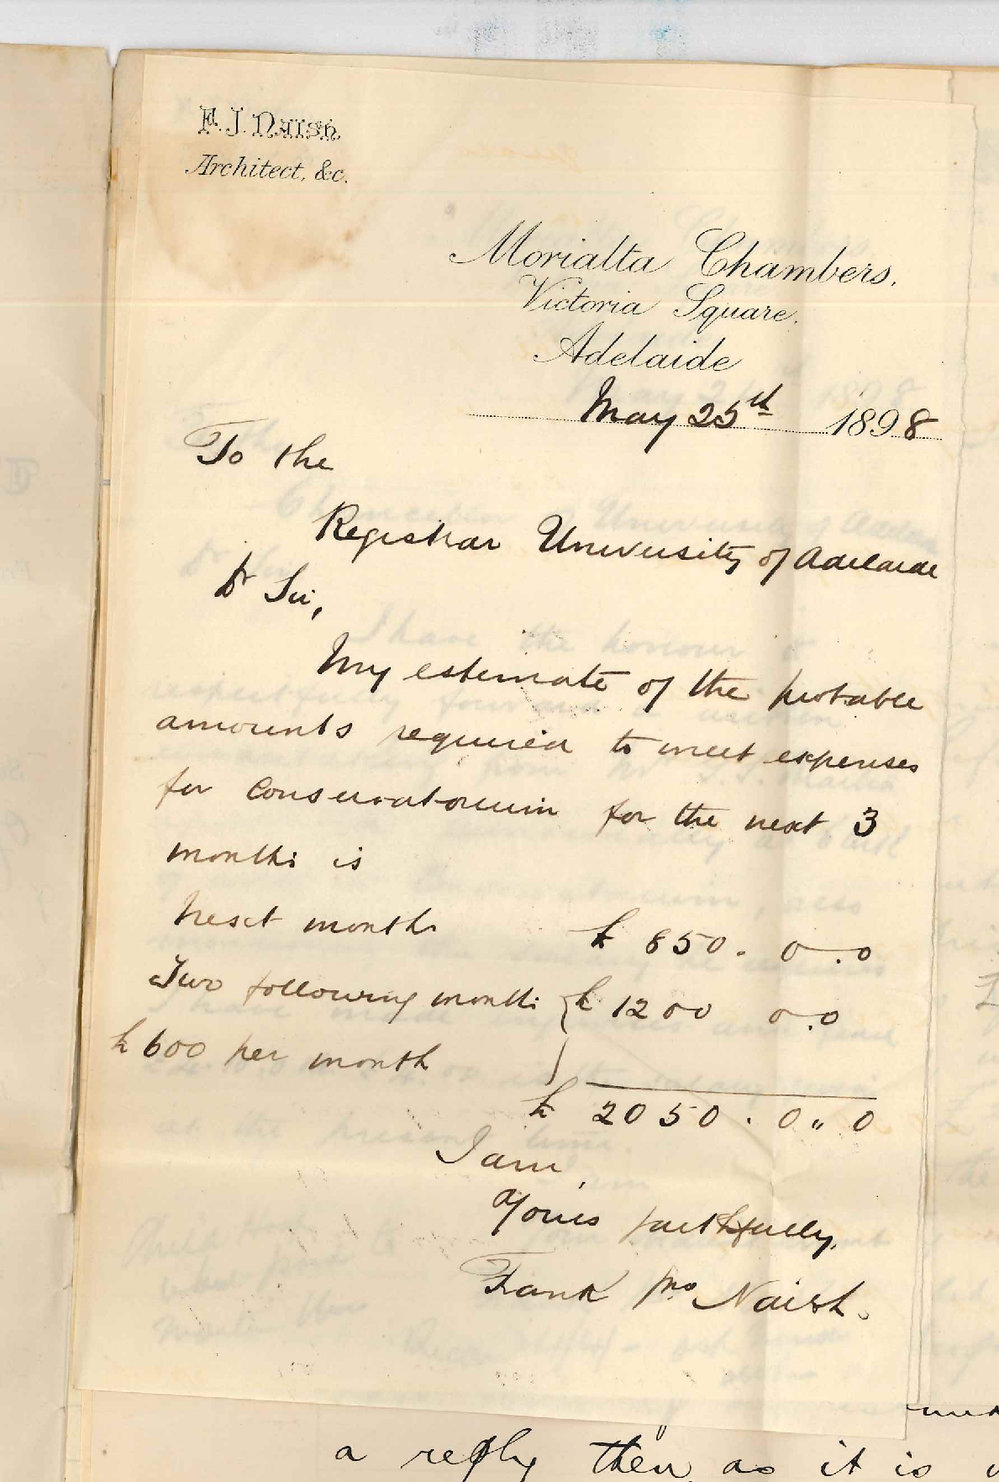 F. J. Naish
Architect, &c.
Morialta Chambers,
Victoria Square,
Adelaide
May 25th 1898
To the
Registrar University of Adelaide
Dr Sir,
My estimate of the probable
amounts required to meet expenses
for Conservatorium for the next 3
months is
Next month £ 850. 0.0
Two following months £ 1200 0.0
£ 600 per month
£ 2050. 0.. 0
I am,
Yours faithfully,
Frank Jno Naish.
a reply then as it is